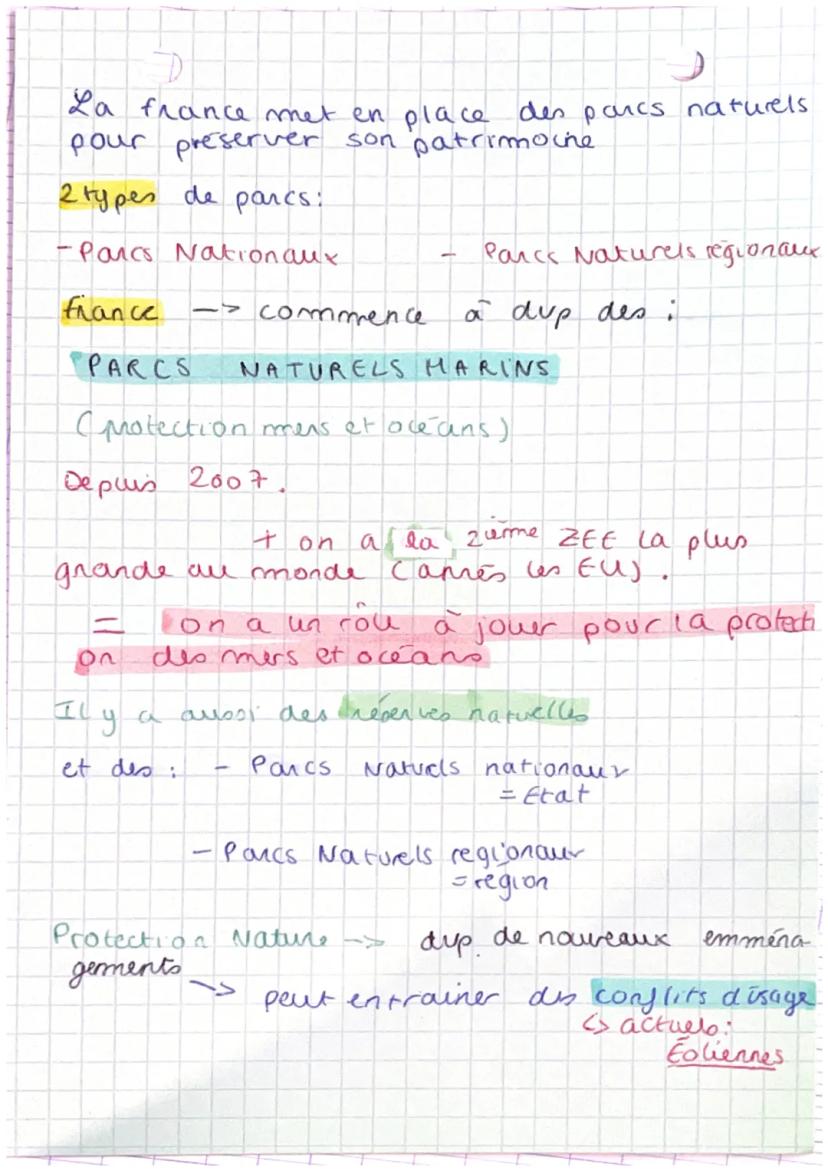 La france met en place des parcs naturels
pour préserver son patrimoine
2 types de parcs:
- Parcs Nationaux - Parcs Naturels régionaux
france -> commmence à dvp des :
PARCS NATURELS MARINS
(protection mers et océans)
Depuis 2007.
+ on a la 2ième ZEE la plus
grande au monde (après les EU).
= on a un rôle à jouer pour la protecti
on des mers et océans
Il y a aussi des réserves naturelles
et des : - Parcs Naturels nationaux
= Etat
- Parcs Naturels regionaux
= region
Protection Nature -> dvp. de nouveaux emména-
gements
-> peut entrainer des conflits d'usage
↳ actuels:
Éoliennes